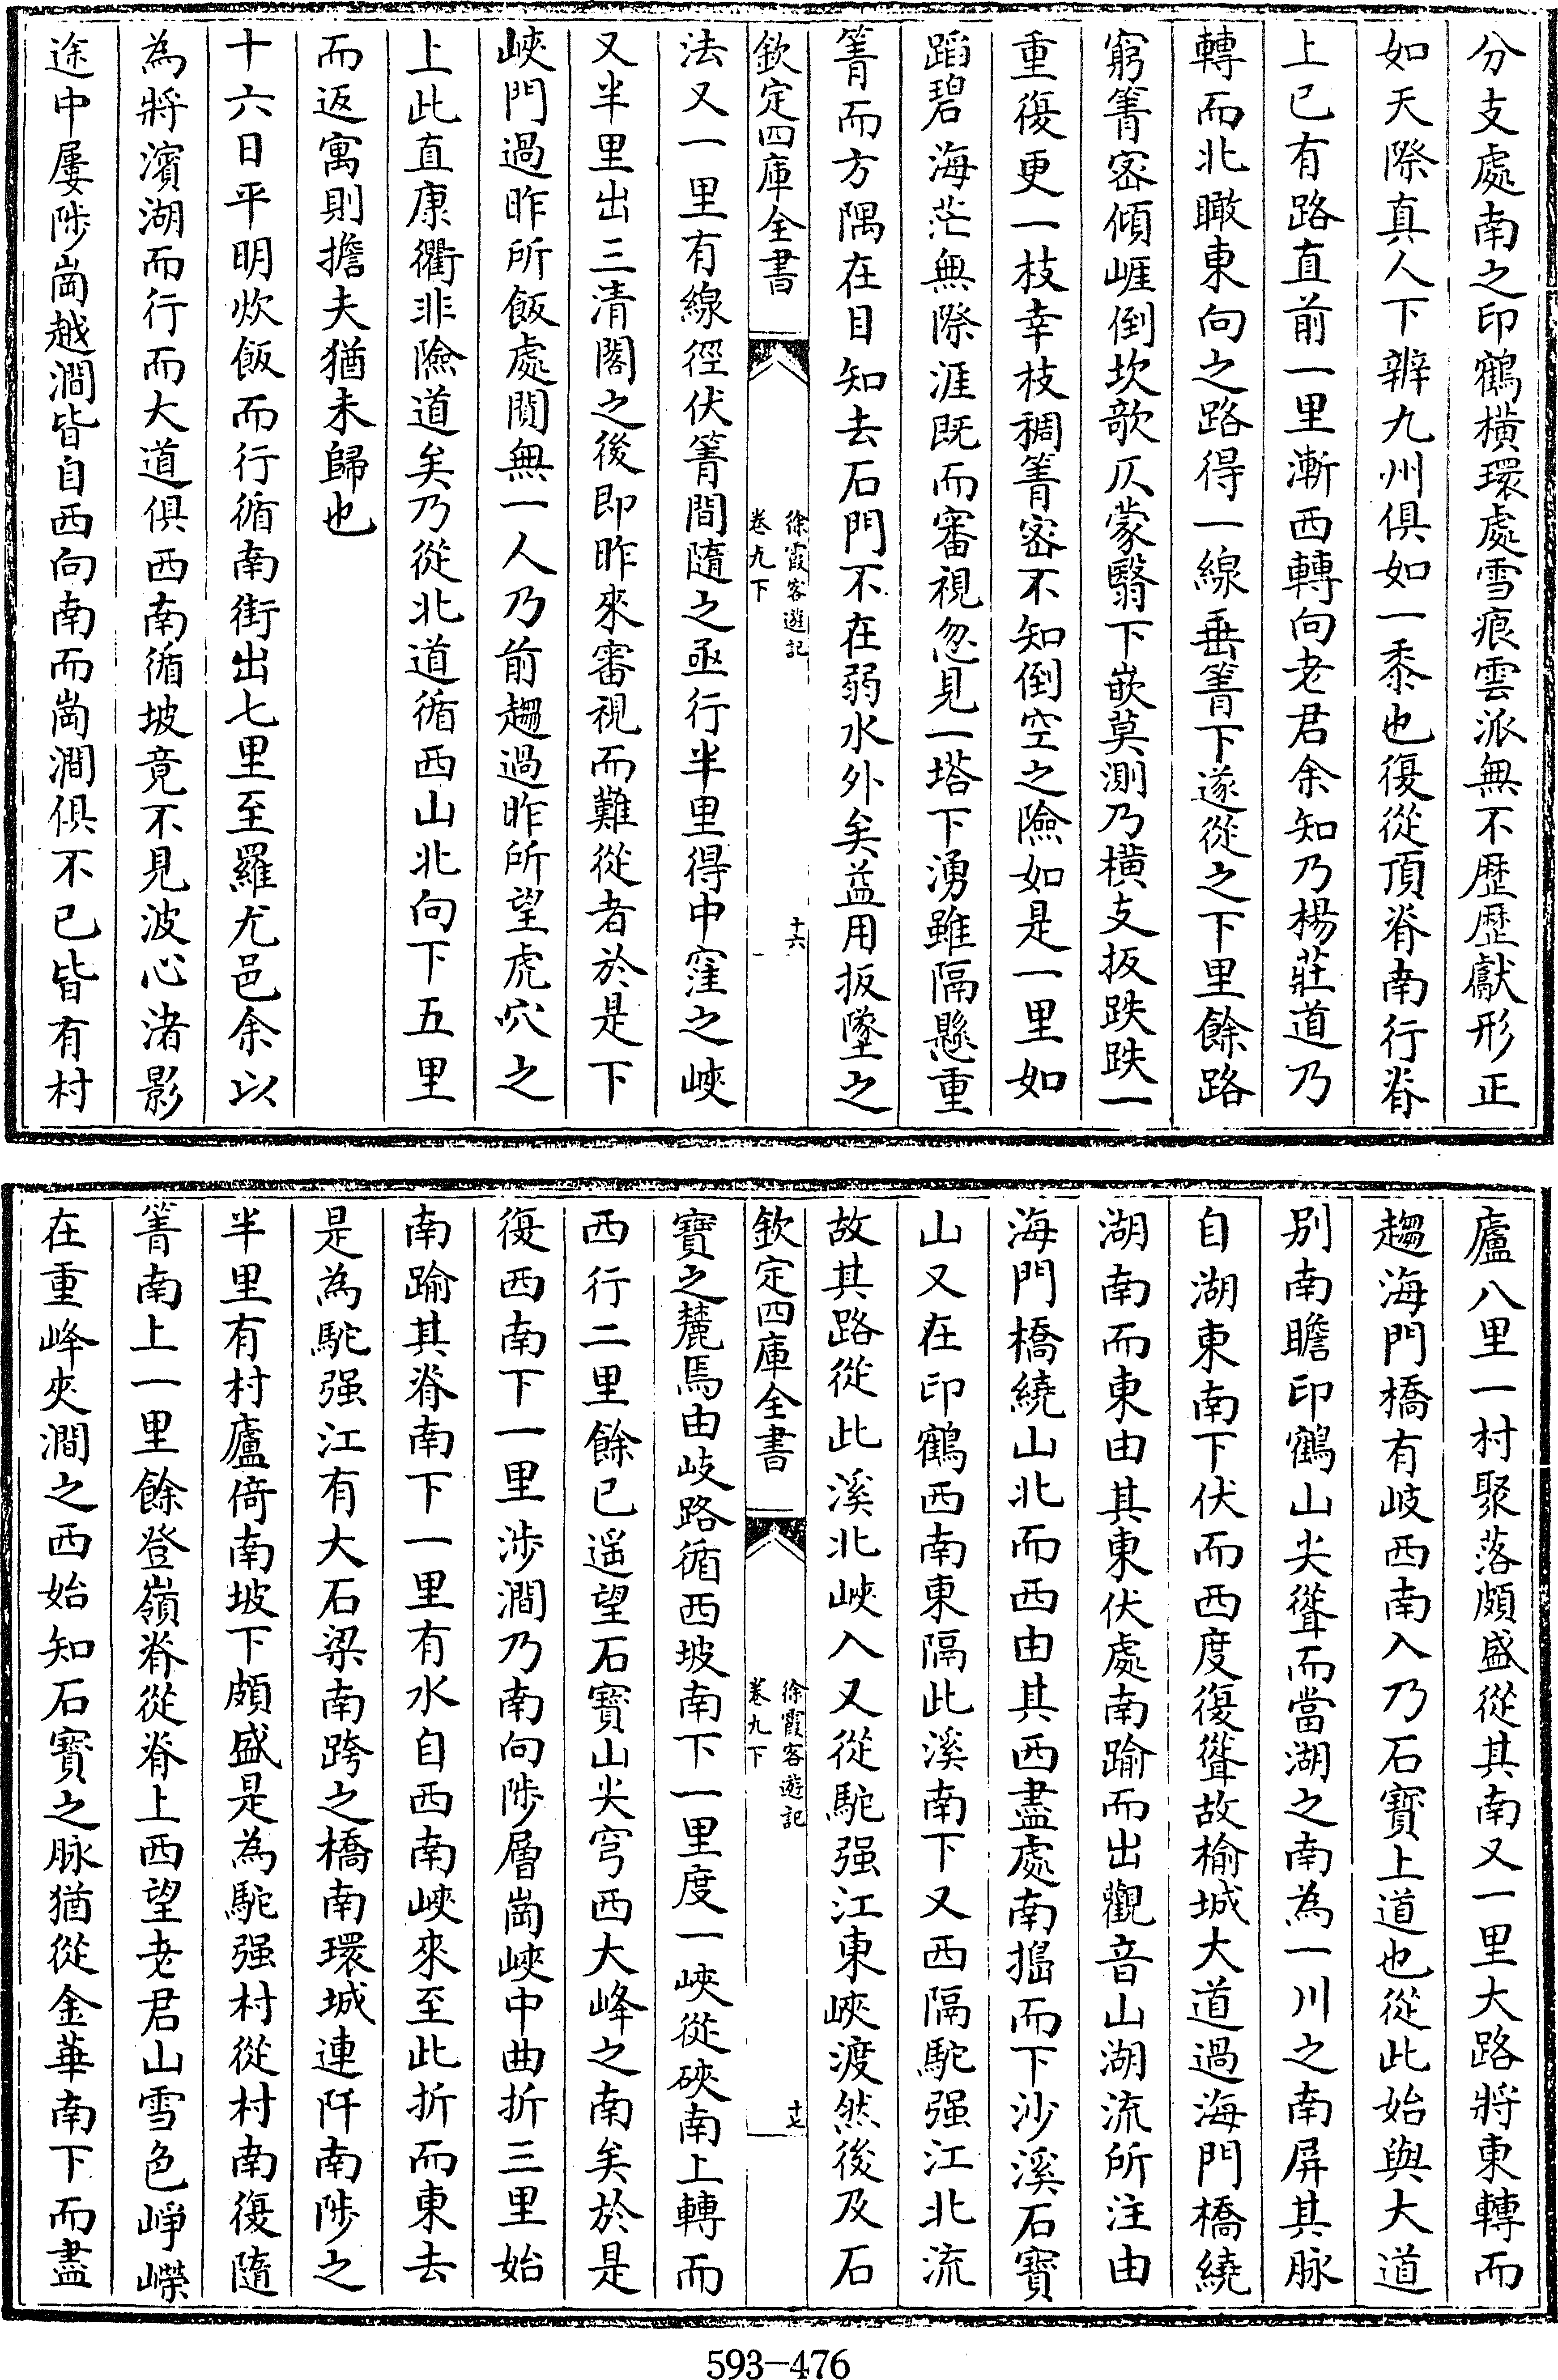 分支處南之印鶴横環處雪痕雲派無不歴歴獻形正
如天際真人下辨九州俱如一黍也復從頂脊南行脊
上已有路直前一里漸西轉向老君余知乃楊莊道乃
轉而北瞰東向之路得一線垂箐下遂從之下里餘路
窮箐宻傾崕倒坎欹仄蒙翳下嵌莫測乃横支扳跌跌一
重復更一枝幸枝稠箐宻不知倒空之險如是一里如
蹈碧海茫無際涯既而審視忽見一塔下湧雖隔懸重
箐而方隅在目知去石門不在弱水外矣益用扳墜之
欽定四庫全書
徐霞客遊記
卷九下
十六
法又一里有線徑伏箐間隨之亟行半里得中窪之峽
又半里出三清閣之後即昨來審視而難從者於是下
峽門過昨所飯處閴無一人乃前趨過昨所望虎穴之
上此直康衢非險道矣乃從北道循西山北向下五里
而返寓則擔夫猶未歸也
十六日平明炊飯而行循南街出七里至羅尤邑余以
為將濱湖而行而大道俱西南循坡竟不見波心渚影
途中屢陟崗越澗皆自西向南而崗澗俱不已皆有村
廬八里一村聚落頗盛從其南又一里大路將東轉而
趨海門橋有岐西南入乃石寶上道也從此始與大道
别南瞻印鶴山尖聳而當湖之南為一川之南屏其脉
自湖東南下伏而西度復聳故榆城大道過海門橋繞
湖南而東由其東伏處南踰而出觀音山湖流所注由
海門橋繞山北而西由其西盡處南搗而下沙溪石寶
山又在印鶴西南東隔此溪南下又西隔駝强江北流
故其路從此溪北峽入又從駝强江東峽渡然後及石
欽定四庫全書
徐霞客遊記
卷九下
十七
寶之麓馬由岐路循西坡南下一里度一峽從硤南上轉而
西行二里餘已遥望石寶山尖穹西大峰之南矣於是
復西南下一里涉澗乃南向陟層崗峽中曲折三里始
南踰其脊南下一里有水自西南峽來至此折而東去
是為駝强江有大石梁南跨之橋南環城連阡南陟之
半里有村廬倚南坡下頗盛是為駝强村從村南復隨
箐南上一里餘登嶺脊從脊上西望老君山雪色崢嶸
在重峰夾澗之西始知石寶之脉猶從金華南下而盡
593—476